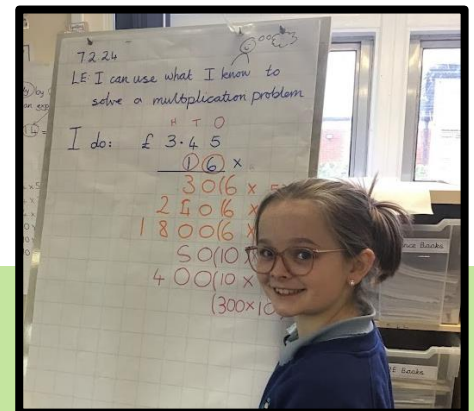 7.2.24
LE: I can use what I know to
solve a multiplication problem
H T O
I do: £ 3.45
16 x
30 (6 x 5)
240 (6 x
1800 (6 x
50 (10 x
400 (10 x
(300 x 10